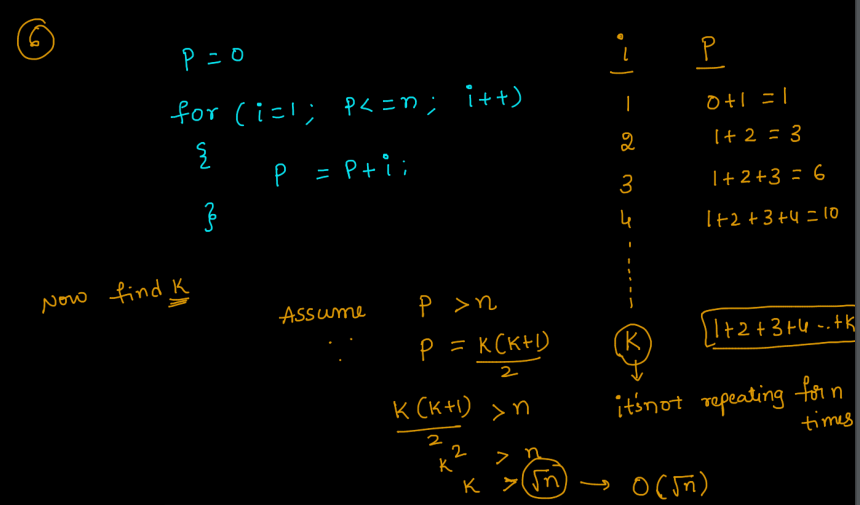 6
P = 0
for (i=1; P<=n; i++)
{
P = P+i;
}
i P
1 0+1 = 1
2 1+2 = 3
3 1+2+3 = 6
4 1+2+3+4 = 10
K 1+2+3+4-..+K
it's not repeating for n
times
Now find K
Assume P >n
∵ P = K(K+1)/2
K(K+1)/2 >n
K² > n
K > √n → O(√n)